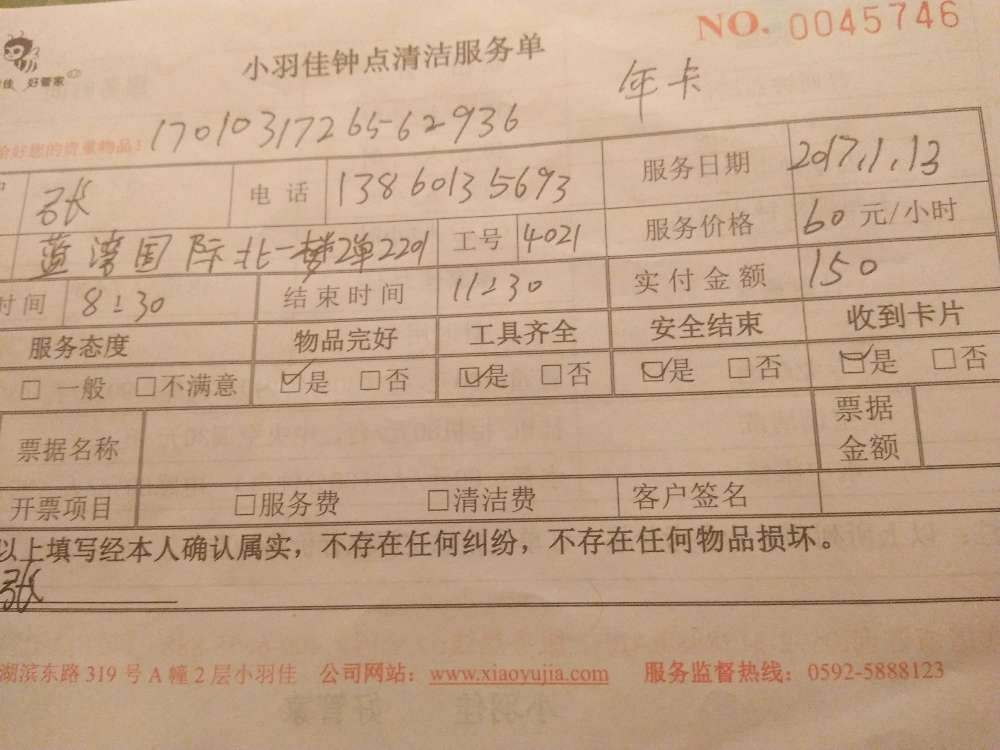 NO. 0045746
小羽佳钟点清洁服务单
佳 好管家
年卡
您的贵重物品! 1701031726562936
张 电话 13860135693 服务日期 2017,1,13
蓝湾国际北一梯2单2201 工号 4021 服务价格 60 元/小时
时间 8:30 结束时间 11:30 实付金额 150
服务态度 物品完好 工具齐全 安全结束 收到卡片
□ 一般 □不满意 ☑是 □否 ☑是 □否 ☑是 □否 ☑是 □否
票据名称 票据金额
开票项目 □服务费 □清洁费 客户签名
以上填写经本人确认属实，不存在任何纠纷，不存在任何物品损坏。
张
湖滨东路 319 号 A 幢 2 层小羽佳 公司网站：www.xiaoyujia.com 服务监督热线：0592-5888123